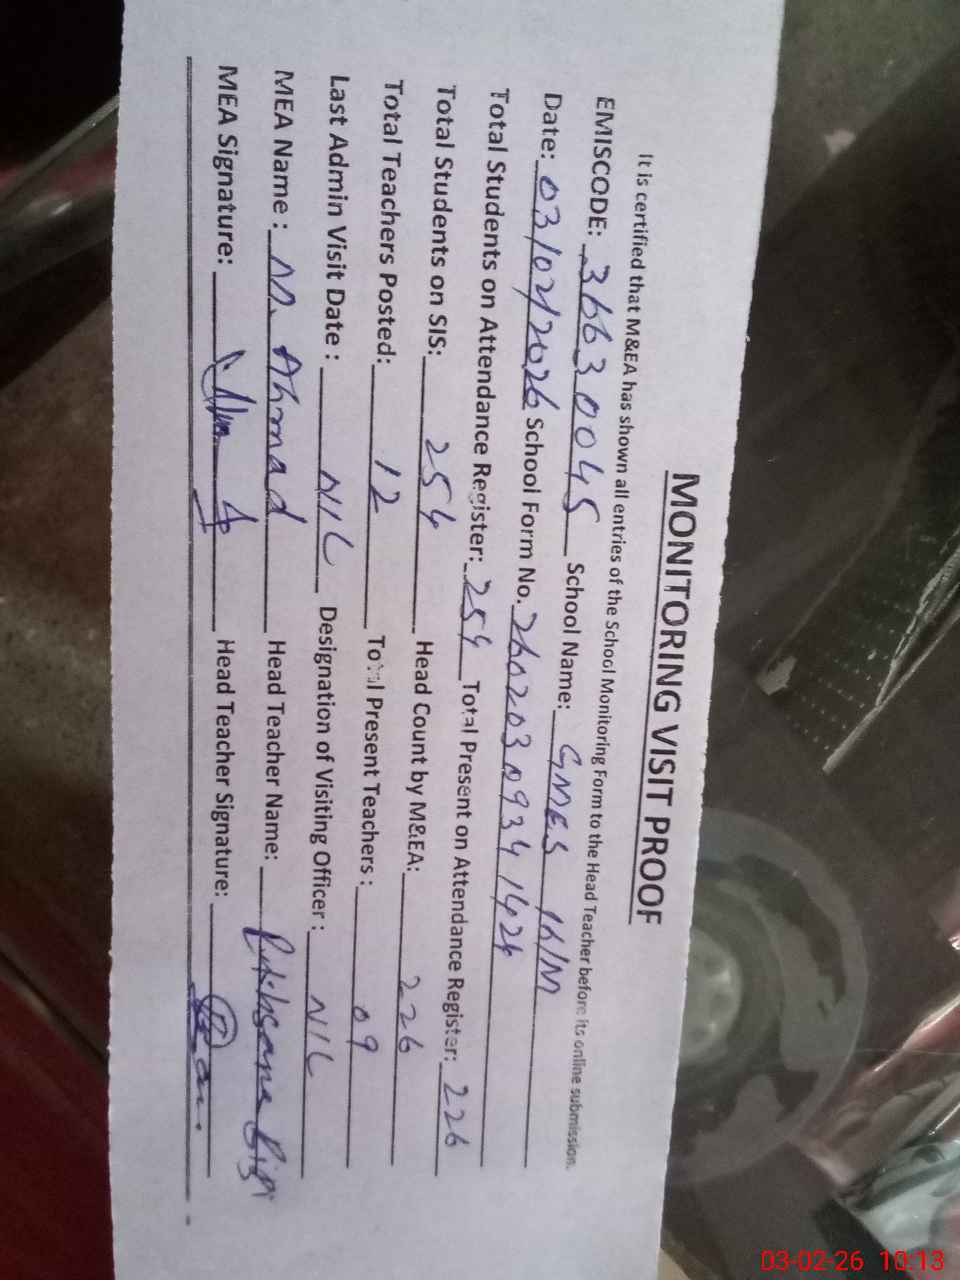 MONITORING VISIT PROOF
It is certified that M&EA has shown all entries of the School Monitoring Form to the Head Teacher before its online submission.
EMISCODE: 36630045 School Name: GMES 1X/M
Date: 03/02/2026 School Form No. 26020309341424
Total Students on Attendance Register: 254 Total Present on Attendance Register: 226
Total Students on SIS: 254 Head Count by M&EA: 226
Total Teachers Posted: 12 Total Present Teachers: 09
Last Admin Visit Date: NIL Designation of Visiting Officer: NIL
MEA Name: M. Ahmad Head Teacher Name: Rukhsana Bibi
MEA Signature: Head Teacher Signature:
03-02-26 10:13